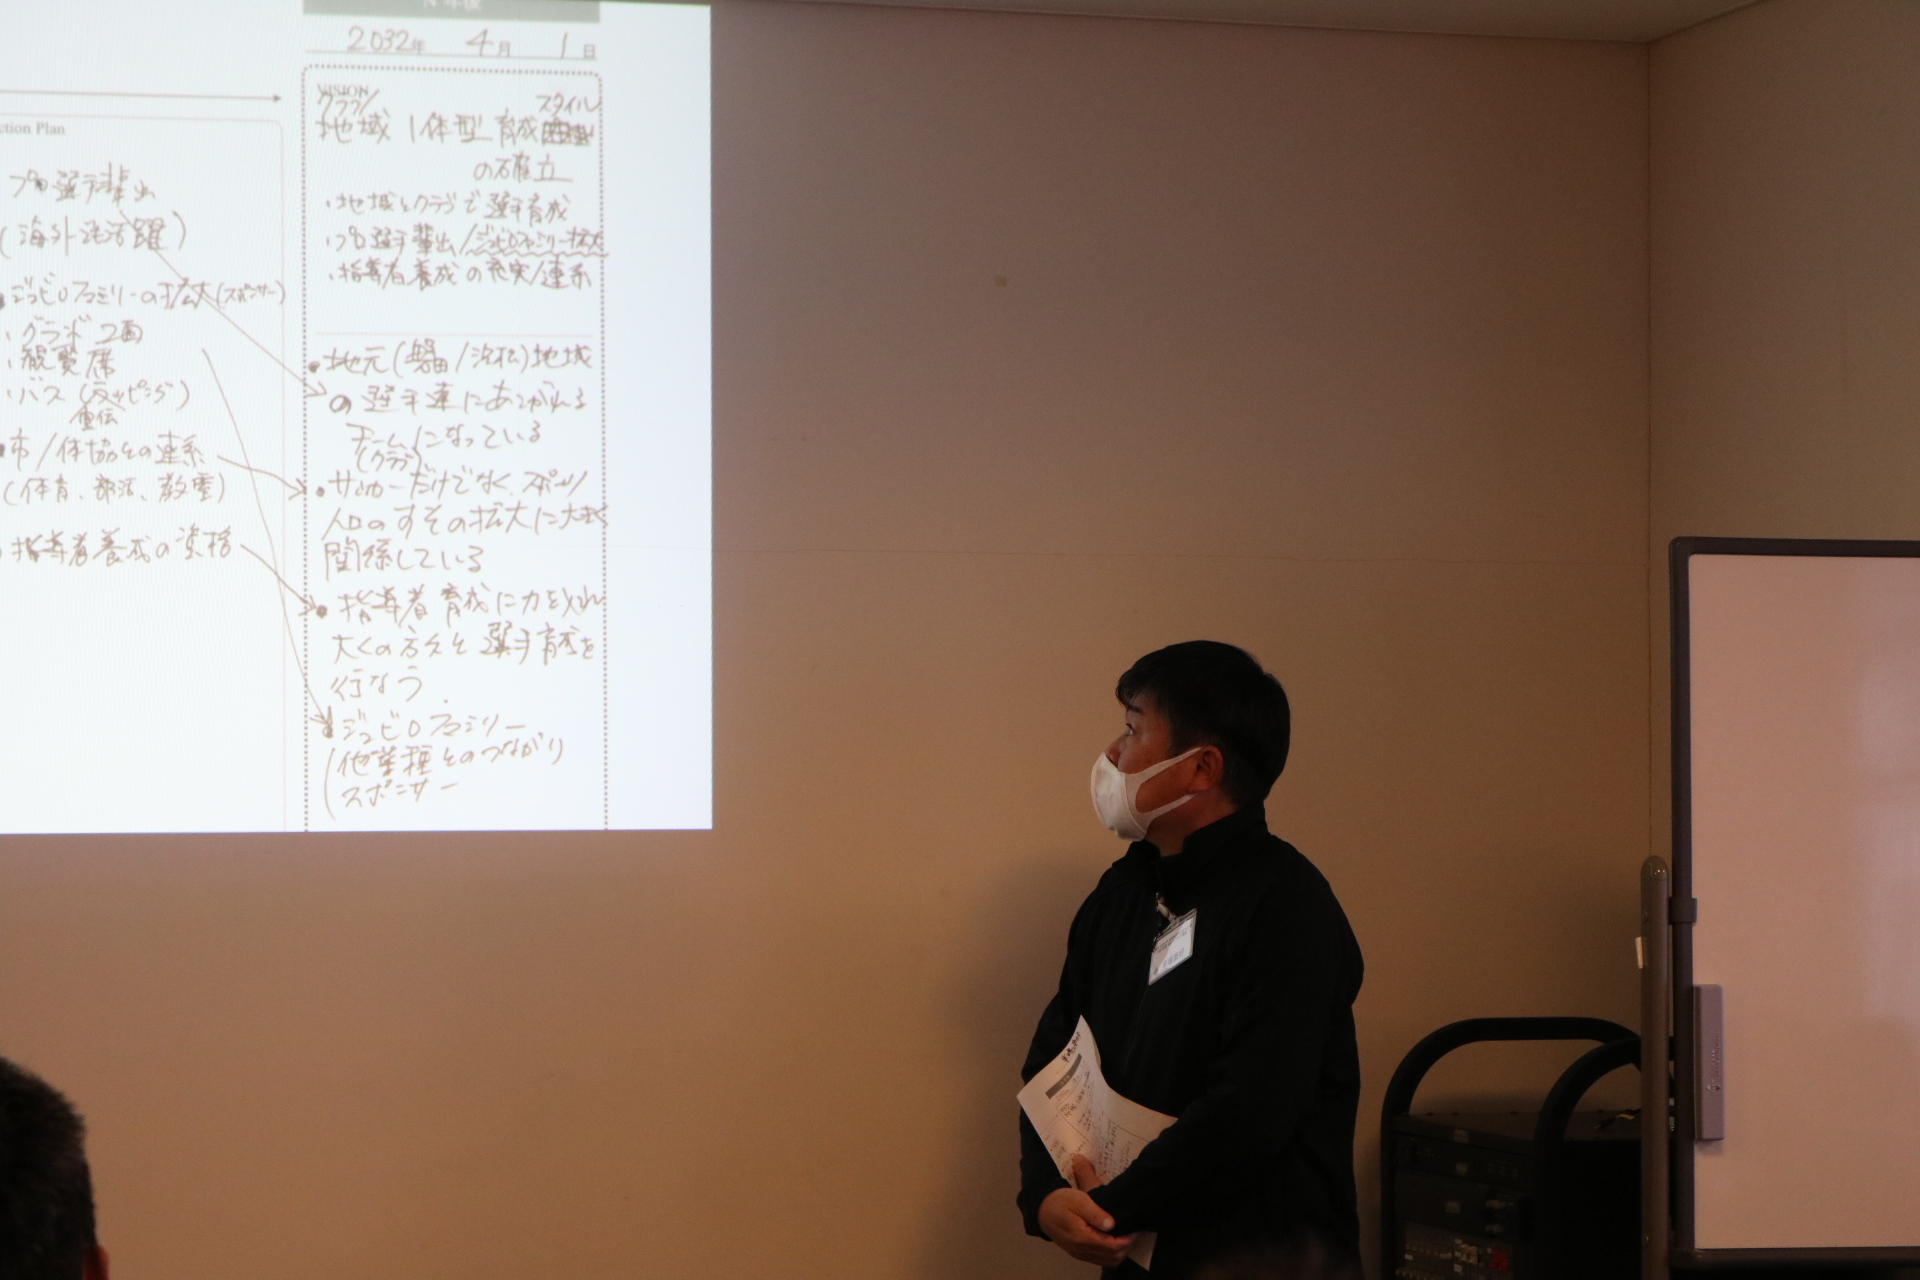 N年後
2032年 4月 1日
VISION
クラブ/ スタイル
地域 1体型 育成
の確立
・地域とクラブで選手育成
・プロ選手輩出/ジュビロファミリー拡大
・指導者養成の充実/連系
・地元(磐田/浜松)地域
の選手達にあこがれる
チームになっている
(クラブ)
・サッカーだけでなく、スポーツ
人口のすその拡大に大きく
関係している
・指導者育成に力を入れ
大くの方々で選手育成を
行なう
・ジュビロファミリー
他業種とのつながり
スポンサー
ction Plan
プロ選手輩出
(海外活躍)
・ジュビロファミリーの拡大(スポンサー)
・グランド2面
・観覧席
・バス(ラッピング)
宣伝
・市/体協との連系
(体育、部活、教室)
・指導者養成の資格